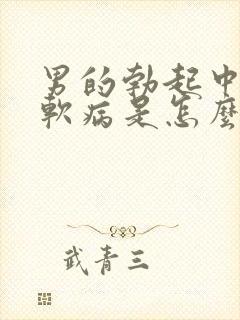 男的勃起中
軟病是怎麼
武青三